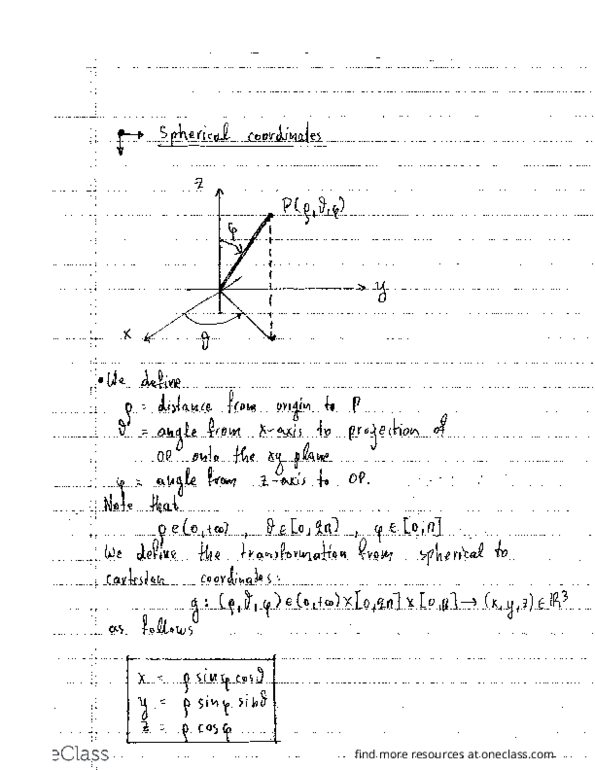 Spherical coordinates
z
P(ρ,ϑ,φ)
φ
y
x
ϑ
• We define
ρ = distance from origin to P
ϑ = angle from x-axis to projection of
OP onto the xy plane
φ = angle from z-axis to OP.
Note that
ρ∈(0,+∞) , ϑ∈[0,2π) , φ∈[0,π]
We define the transformation from spherical to
cartesian coordinates:
g: (ρ,ϑ,φ)∈(0,+∞)×[0,2π]×[0,π] → (x,y,z)∈ℝ³
as follows
x = ρ sinφ cosϑ
y = ρ sinφ sinϑ
z = ρ cosφ
eClass
find more resources at oneclass.com